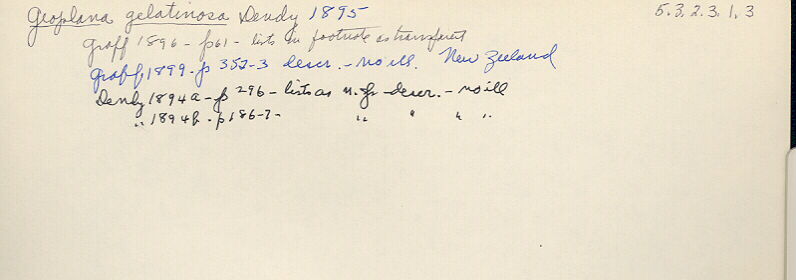 Geoplana gelatinosa Dendy 1895 5.3.2.3.1.3
Graff 1896 - p61 - lists in footnote as transferred
Graff 1899 - p 352-3 descr. - no ill. New Zeeland
Dendy 1894a - p 296 - lists as n. sp descr. - no ill
" 1894b - p186-7 - " " " "